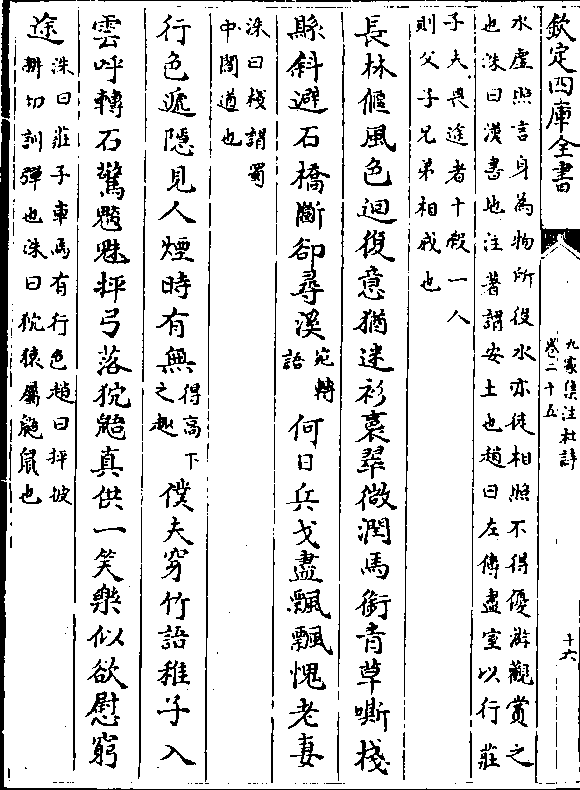 欽定四庫全書
九家集注杜詩
卷二十五
十六
水虛照言身為物所役水亦徒相照不得優游觀賞之
也洙曰漢書地注著謂安土也趙曰左傳盡室以行莊
子夫畏途者十殺一人
則父子兄弟相戒也
長林偃風色迴復意猶迷衫裛翠微潤馬銜青草嘶棧
縣斜避石橋斷卻尋溪宛轉語何日兵戈盡飄飄愧老妻
洙曰棧謂蜀
中閣道也
行色遞隱見人煙時有無得高下之趣僕夫穿竹語稚子入
雲呼轉石驚魑魅抨弓落狖鼯真供一笑樂似欲慰窮
途洙曰莊子車馬有行色趙曰抨披
耕切訓彈也洙曰狖猿屬鼯鼠也